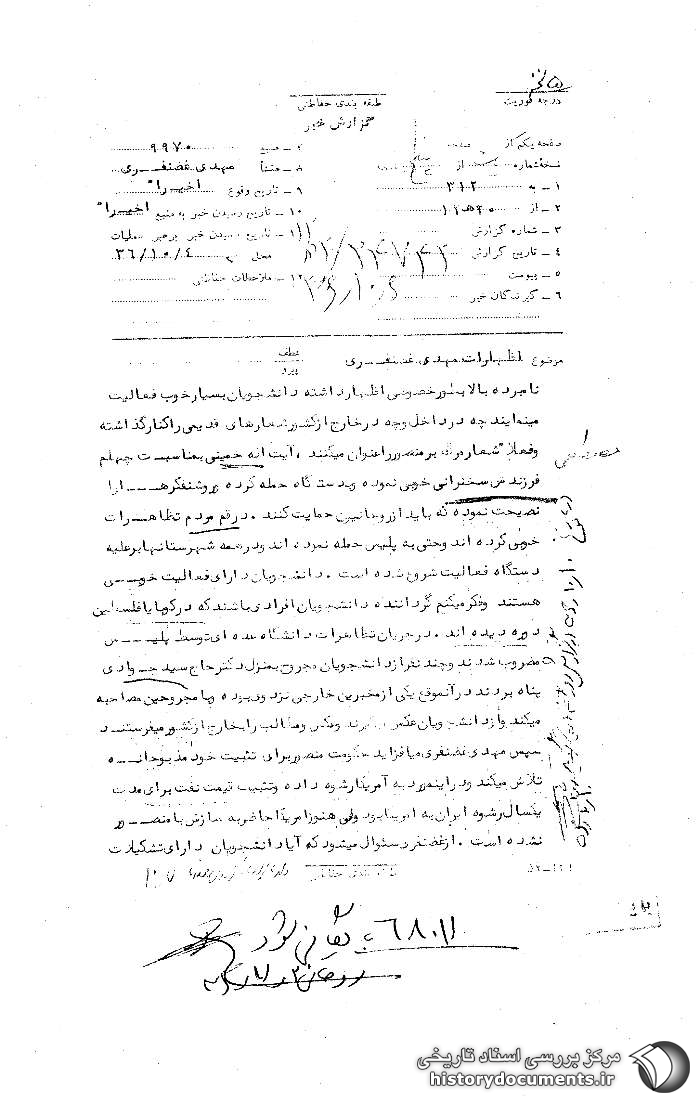 درجه فوریت
طبقه بندی حفاظتی
گزارش خبر
صفحه یکم از صفحه
نسخه شماره از
۱ ـ به ۳۱۲
۲ ـ از ۲۰ه۱۲
۳ ـ شماره گزارش
۴ ـ تاریخ گزارش
۵ ـ پیوست
۶ ـ گیرندگان خبر
۷ ـ منبع ۹۹۷۰
۸ ـ منشأ مهدی غضنفـــری
۹ ـ تاریخ وقوع اخیـــرا"
۱۰ ـ تاریخ رسیدن خبر به منبع اخیـــرا"
۱۱ ـ تاریخ رسیدن خبر برهبر عملیات
محل ۳۶/۱۰/۴
۱۲ ـ ملاحظات حفاظتی
موضوع اظهارات مهدی غضنفــری
عطف
پیرو
نامبرده بالا بطور خصوصی اظهار داشته دانشجویان بسیار خوب فعالیت
مینمایند چه در داخل وچه در خارج از کشور شعارهای قدیمی را کنار گذاشته
وفعلا" شعار مرگ بر منصور را عنوان میکنند ، آیت اله خمینی بمناسبت چهلم
فرزندش سخنرانی خوبی نموده وبدستگاه حمله کرده وروشنفکرهـــا را
نصیحت نموده که باید از روحانیین حمایت کنند . در قم مردم تظاهـــرات
خوبی کرده اند وحتی به پلیس حمله نموده اند ودر همه شهرستانها بر علیه
دستگاه فعالیت شروع شده است . دانشجویان دارای فعالیت خوبـــی
هستند وفکر میکنم گرداننده دانشجویان افرادی باشند که در کوبا یا فلسطین
دوره دیده اند . در جریان تظاهرات دانشگاه عده ای توسط پلیـــس
مضروب شدند وچند نفر از دانشجویان مجروح بمنزل دکتر حاج سید جـــوادی
پناه بردند در آنموقع یکی از مخبرین خارجی نزد وی بوده وبا مجروحین مصاحبه
میکند واز دانشجویان عکس میگیرند وعکس ومطالب را بخارج از کشور میفرستنـــد
سپس مهدی غضنفری میافزاید حکومت منصور برای تثبیت خود مذبوحانـــه
تلاش میکند ودر اینمورد به آمریکا رشوه داده وتثبیت قیمت نفت برای مدت
یکسال رشوه ایران به امریکا بود ولی هنوز امریکا حاضر به سازش با منصـــور
نشده است . از غضنفر سئوال میشود که آیا دانشجویان دارای تشکیلات
طبقه بندی حفاظتی
مرکز بررسی اسناد تاریخی
historydocuments.ir